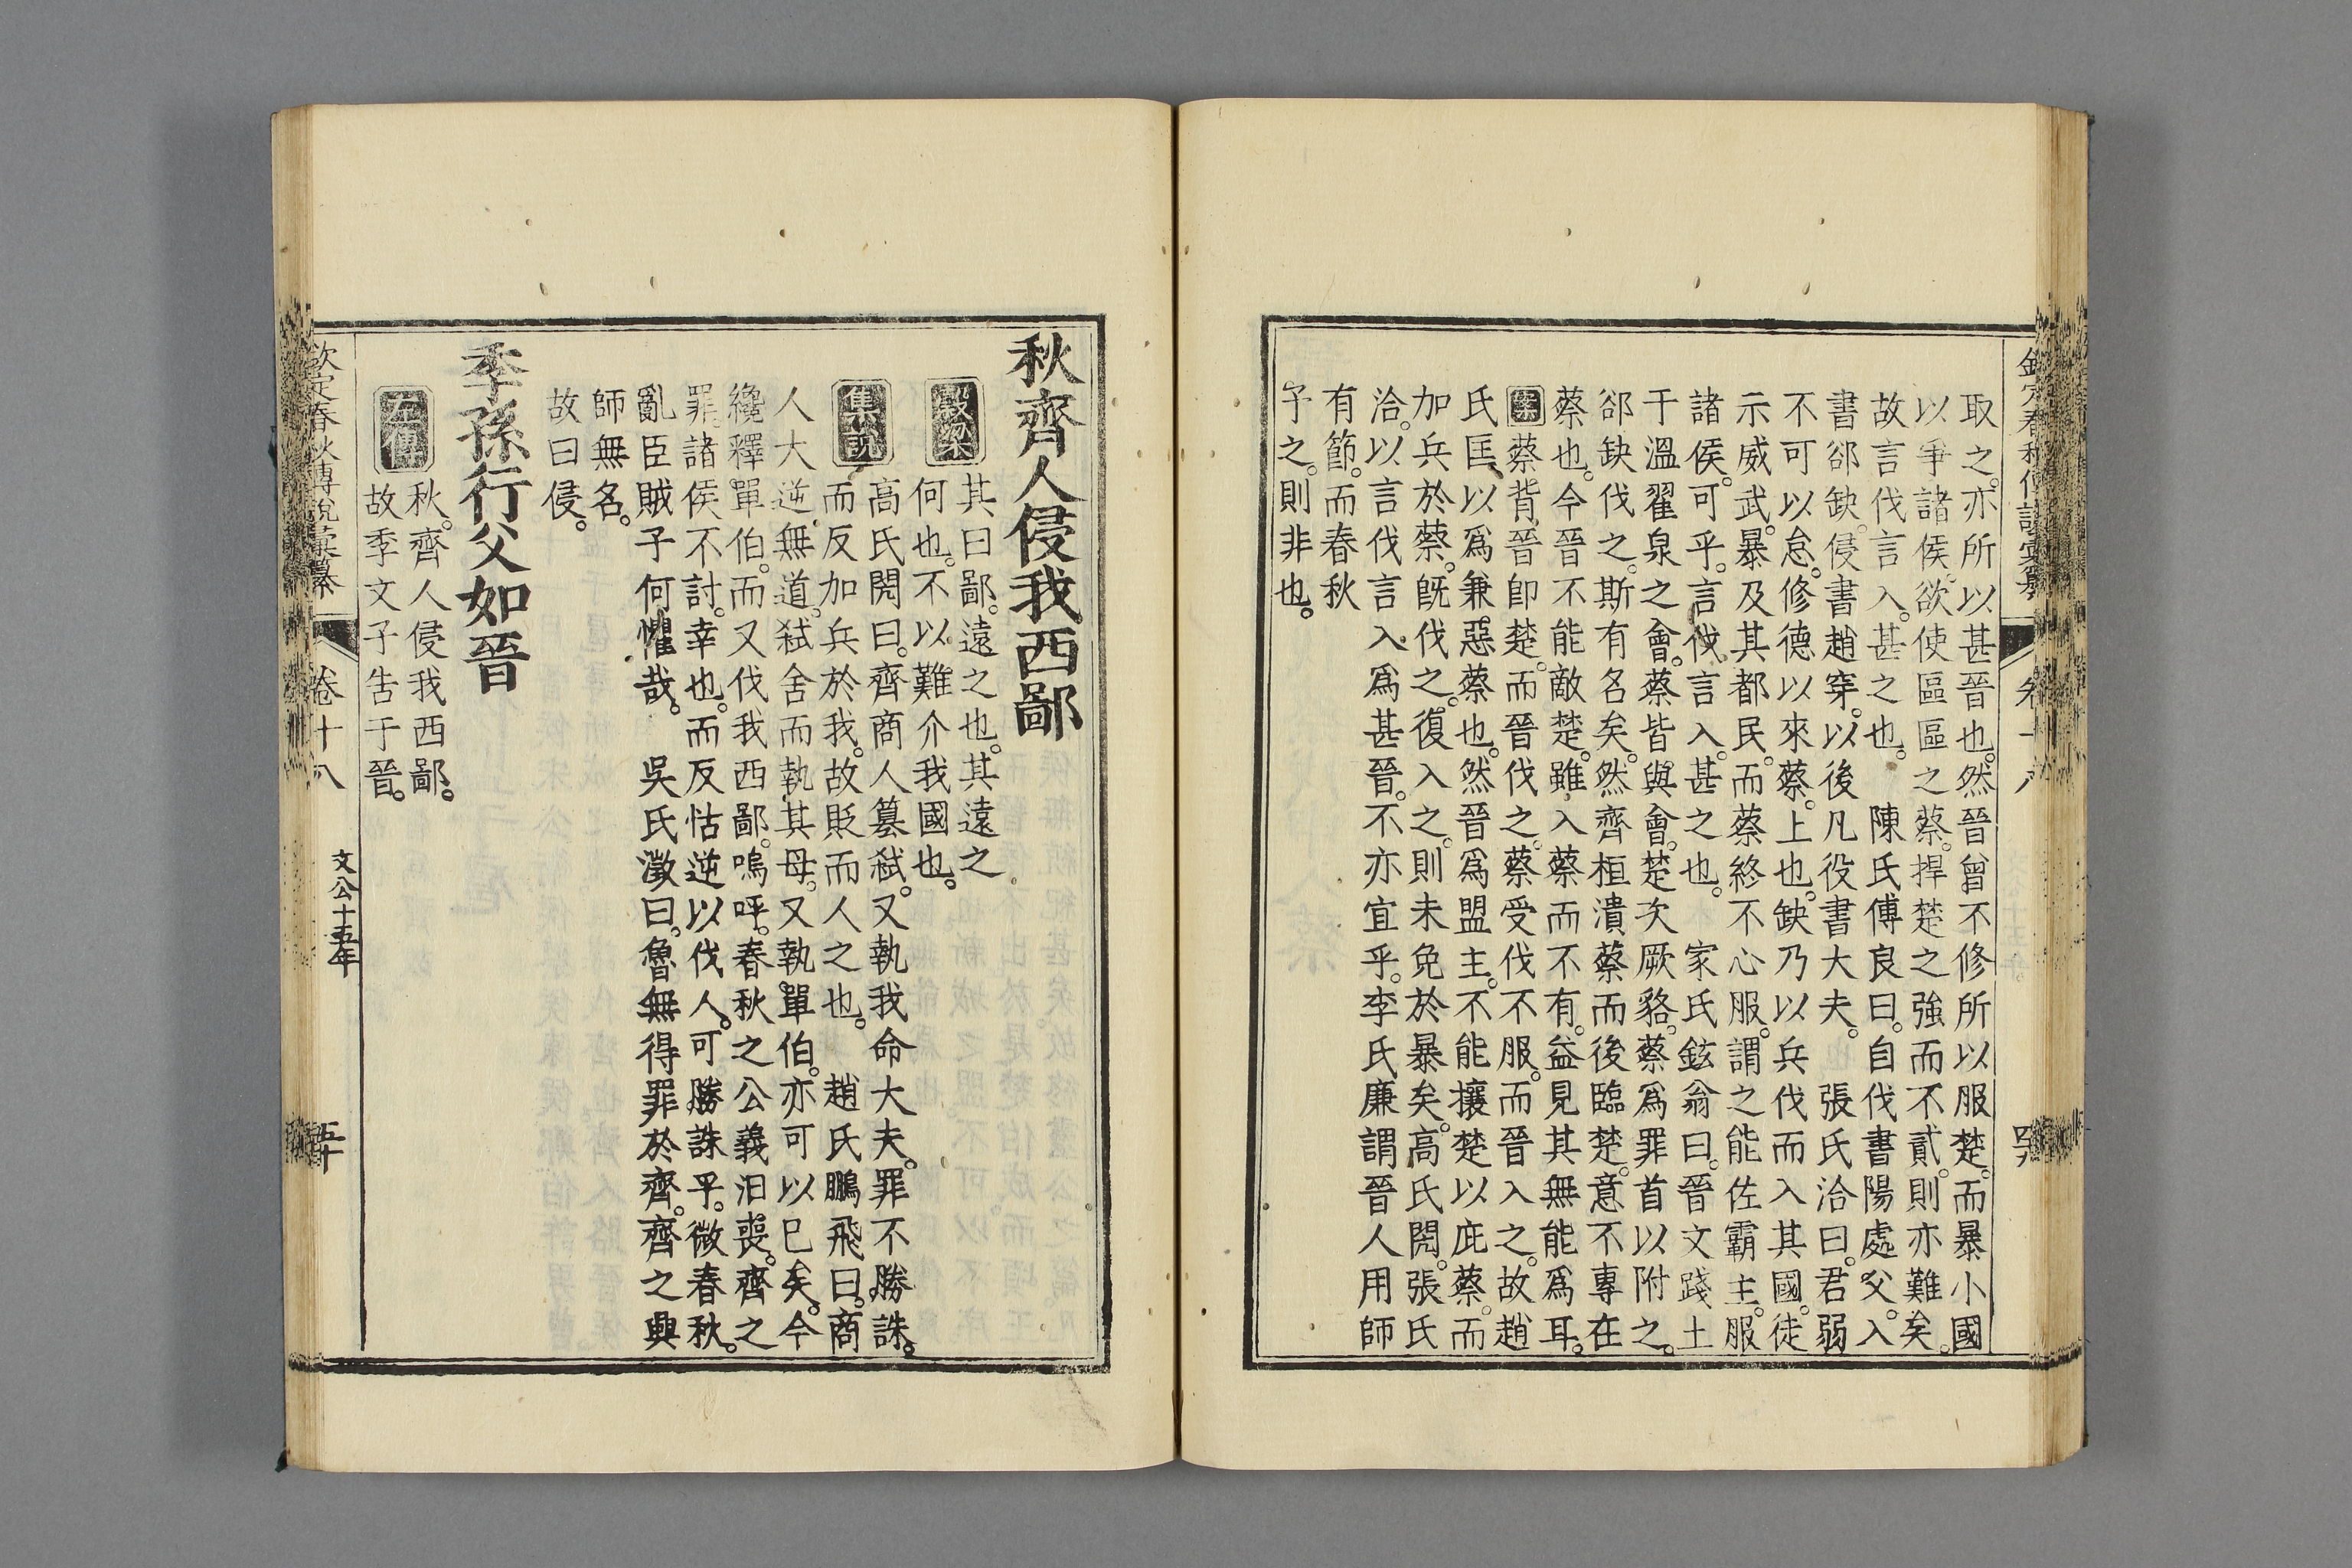 取之。亦所以甚晉也。然晉曾不修所以服楚。而暴小國
以爭諸侯。欲使區區之蔡。捍楚之強而不貳。則亦難矣。
故言伐言入。甚之也。 陳氏傅良曰。自伐書陽處父。入
書郤缺。侵書趙穿。以後凡役書大夫。 張氏洽曰。君弱
不可以怠。修德以來蔡。上也。缺乃以兵伐而入其國。徒
示威武。暴及其都民。而蔡終不心服。謂之能佐霸主。服
諸侯。可乎。言伐。言入。甚之也。 家氏鉉翁曰。晉文踐土
于溫翟泉之會。蔡皆與會。楚次厥貉。蔡爲罪首以附之。
郤缺伐之。斯有名矣。然齊桓潰蔡而後臨楚。意不專在
蔡也。今晉不能敵楚。雖入蔡而不有。益見其無能爲耳。
案蔡背晉卽楚。而晉伐之。蔡受伐不服。而晉入之。故趙
氏匡以爲兼惡蔡也。然晉爲盟主。不能攘楚以庇蔡。而
加兵於蔡。旣伐之。復入之。則未免於暴矣。高氏閌。張氏
洽。以言伐言入爲甚晉。不亦宜乎。李氏廉謂晉人用師
有節。而春秋
予之。則非也。
秋齊人侵我西鄙
穀梁
其曰鄙。遠之也。其遠之
何也。不以難介我國也。
集說
高氏閌曰。齊商人篡弑。又執我命大夫。罪不勝誅。
而反加兵於我。故貶而人之也。 趙氏鵬飛曰。商
人大逆無道。弑舍而執其母。又執單伯。亦可以已矣。今
纔釋單伯。而又伐我西鄙。嗚呼。春秋之公義汨喪。齊之
罪。諸侯不討。幸也。而反怙逆以伐人。可勝誅乎。微春秋。
亂臣賊子何懼哉。 吳氏澂曰。魯無得罪於齊。齊之興
師無名。
故曰侵。
季孫行父如晉
左傳
秋。齊人侵我西鄙。
故季文子告于晉。
欽定春秋傳說彙纂
卷十八
文公十五年
五十